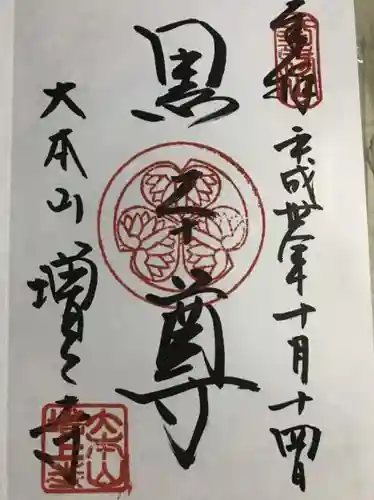 奉拝
平成卅年十月十四日
黒本尊
大本山 増上寺
大本山
増上寺